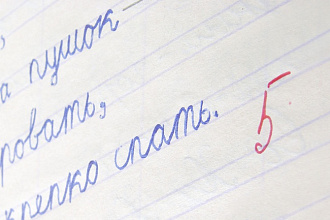 а пушок
ровать,
крепко спать.
5